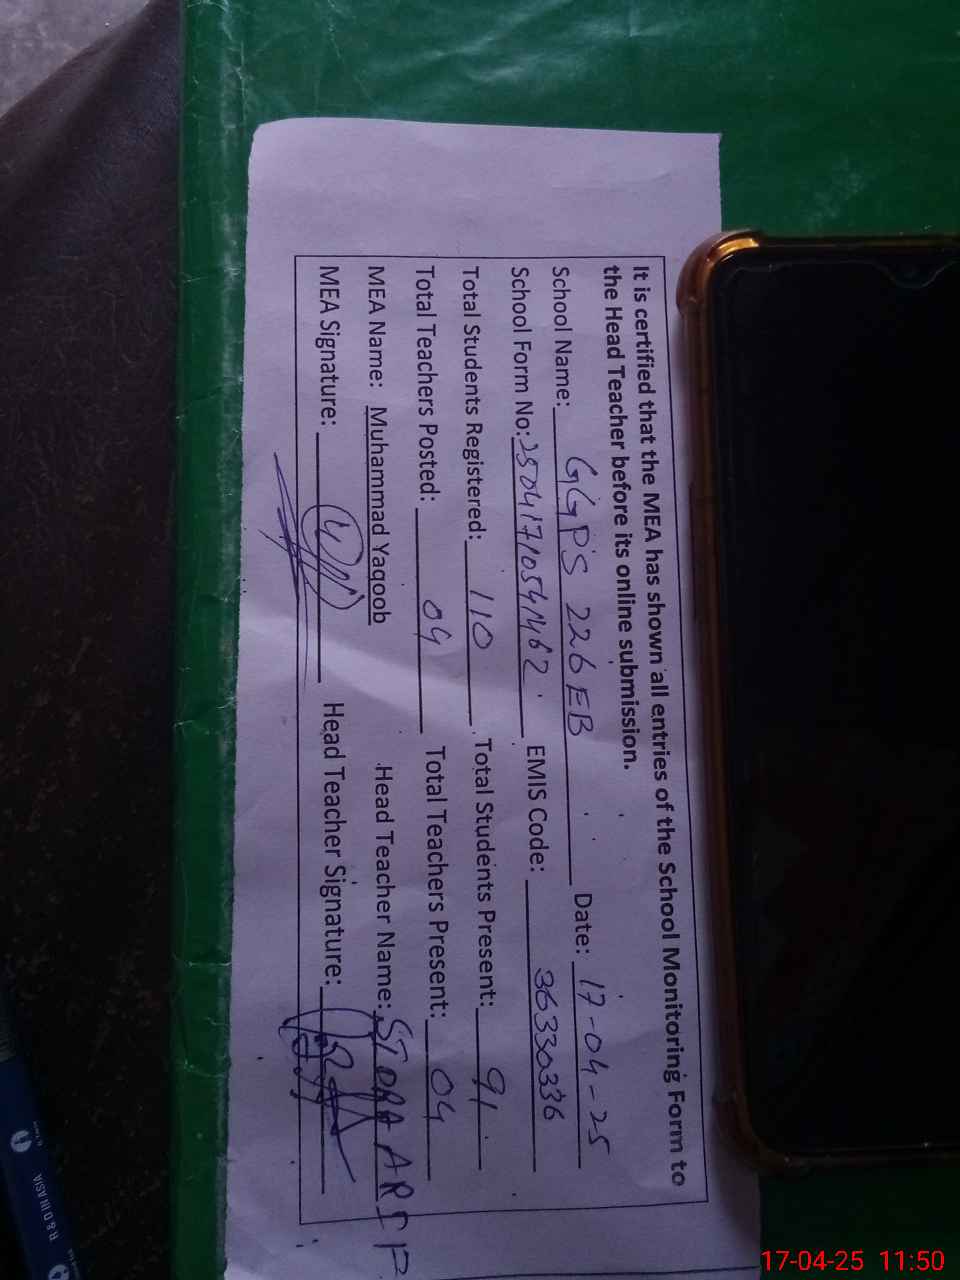 It is certified that the MEA has shown all entries of the School Monitoring Form to
the Head Teacher before its online submission.
School Name: GGPS 226 EB Date: 17-04-25
School Form No: 25041710541462 EMIS Code: 36330336
Total Students Registered: 110 Total Students Present: 91
Total Teachers Posted: 04 Total Teachers Present: 04
MEA Name: Muhammad Yaqoob Head Teacher Name:
MEA Signature: Head Teacher Signature:
R & D IN ASIA
17-04-25 11:50